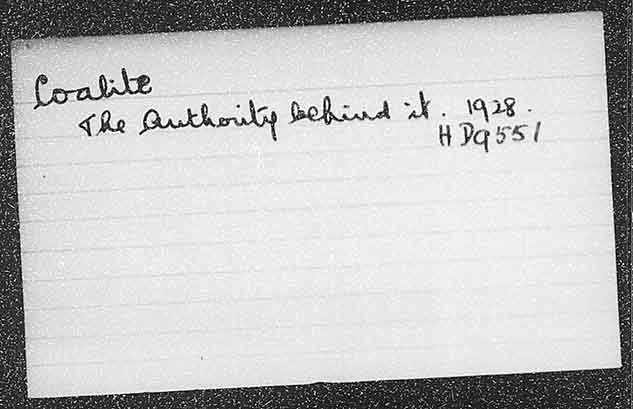 Coalite
The Authority behind it. 1928.
HD9551